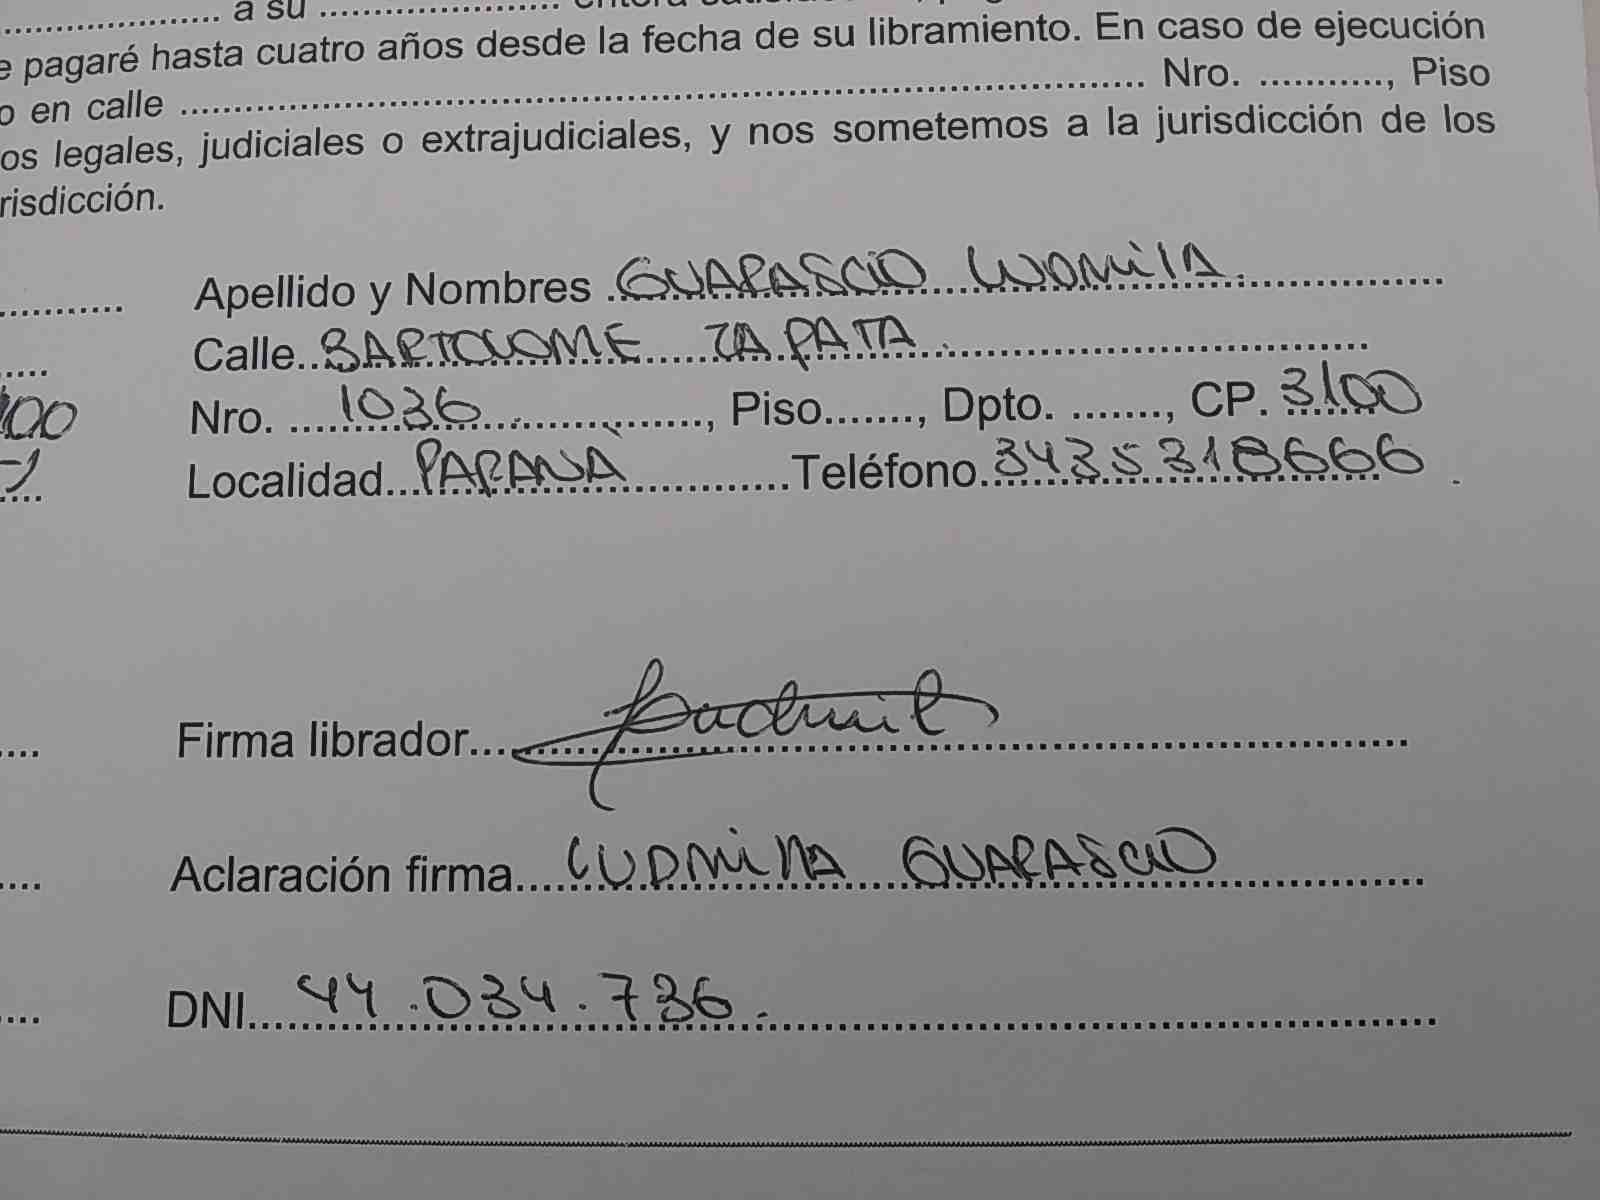 .................... a su ......................
e pagaré hasta cuatro años desde la fecha de su libramiento. En caso de ejecución
o en calle .......................................................................................... Nro. ............, Piso
os legales, judiciales o extrajudiciales, y nos sometemos a la jurisdicción de los
risdicción.
Apellido y Nombres GUARASCIO LUDMILA
Calle BARTOLOME ZAPATA
100 Nro. 1036, Piso......., Dpto. ......., CP. 3100
Localidad PARANÁ Teléfono 3435318666
Firma librador
Aclaración firma LUDMILA GUARASCIO
DNI 44.034.736.